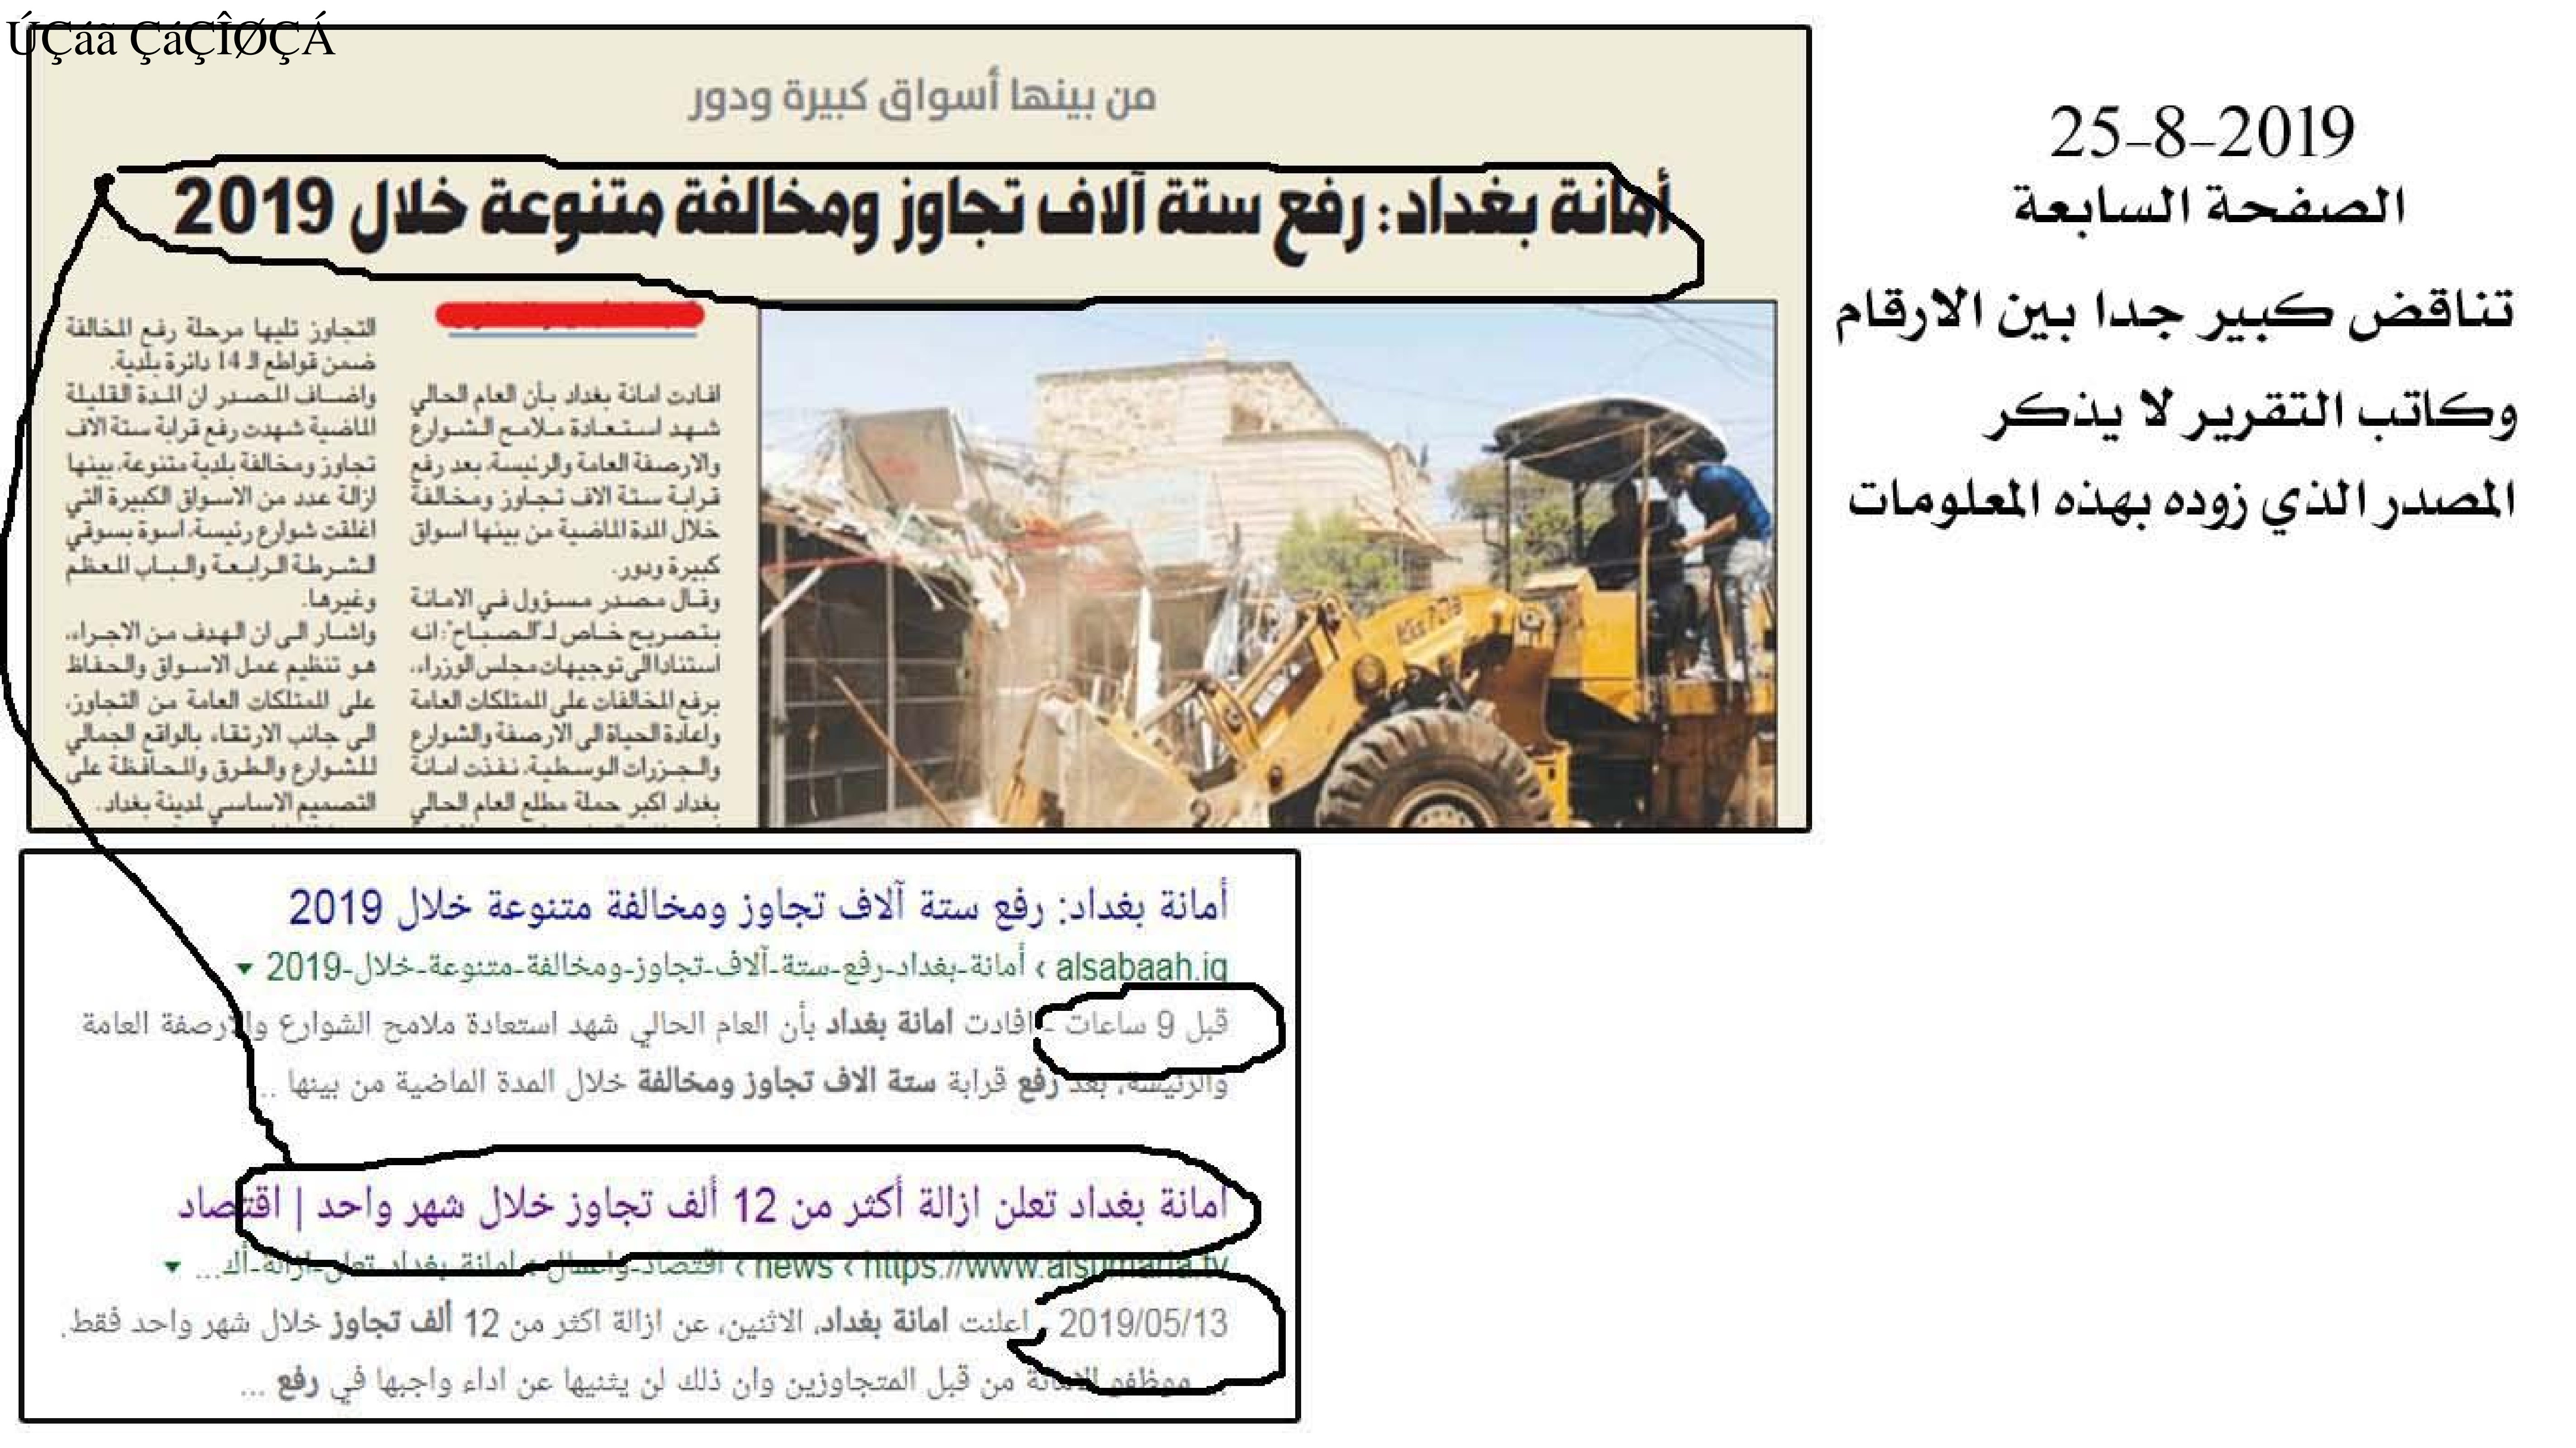 ÚÇáã ÇáÇÎØÇÁ
من بينها أسواق كبيرة ودور
أمانة بغداد: رفع ستة آلاف تجاوز ومخالفة متنوعة خلال 2019
افادت امانة بغداد بأن العام الحالي
شهد استعادة ملامح الشوارع
والارصفة العامة والرئيسة، بعد رفع
قرابة ستة الاف تجاوز ومخالفة
خلال المدة الماضية من بينها اسواق
كبيرة ودور.
وقال مصدر مسؤول في الامانة
بتصريح خاص لـ"الصباح": انه
استنادا الى توجيهات مجلس الوزراء،
برفع المخالفات على الممتلكات العامة
واعادة الحياة الى الارصفة والشوارع
والجزرات الوسطية، نفذت امانة
بغداد اكبر حملة مطلع العام الحالي
التجاوز تليها مرحلة رفع المخالفة
ضمن قواطع الـ 14 دائرة بلدية.
واضاف المصدر ان المدة القليلة
الماضية شهدت رفع قرابة ستة الاف
تجاوز ومخالفة بلدية متنوعة، بينها
ازالة عدد من الاسواق الكبيرة التي
اغلقت شوارع رئيسة، اسوة بسوقي
الشرطة الرابعة والباب المعظم
وغيرها.
واشار الى ان الهدف من الاجراء،
هو تنظيم عمل الاسواق والحفاظ
على الممتلكات العامة من التجاوز،
الى جانب الارتقاء بالواقع الجمالي
للشوارع والطرق والمحافظة على
التصميم الاساسي لمدينة بغداد.
25-8-2019
الصفحة السابعة
تناقض كبير جدا بين الارقام
وكاتب التقرير لا يذكر
المصدر الذي زوده بهذه المعلومات
أمانة بغداد: رفع ستة آلاف تجاوز ومخالفة متنوعة خلال 2019
alsabaah.iq › أمانة-بغداد-رفع-ستة-آلاف-تجاوز-ومخالفة-متنوعة-خلال-2019
قبل 9 ساعات - افادت امانة بغداد بأن العام الحالي شهد استعادة ملامح الشوارع والارصفة العامة
والرئيسة، بعد رفع قرابة ستة الاف تجاوز ومخالفة خلال المدة الماضية من بينها ...
امانة بغداد تعلن ازالة أكثر من 12 ألف تجاوز خلال شهر واحد | اقتصاد
https://www.alsumaria.tv › news › اقتصاد-واعمال › امانة-بغداد-تعلن-ازالة-أك...
2019/05/13 - اعلنت امانة بغداد، الاثنين، عن ازالة اكثر من 12 ألف تجاوز خلال شهر واحد فقط.
... موظفو الامانة من قبل المتجاوزين وان ذلك لن يثنيها عن اداء واجبها في رفع ...